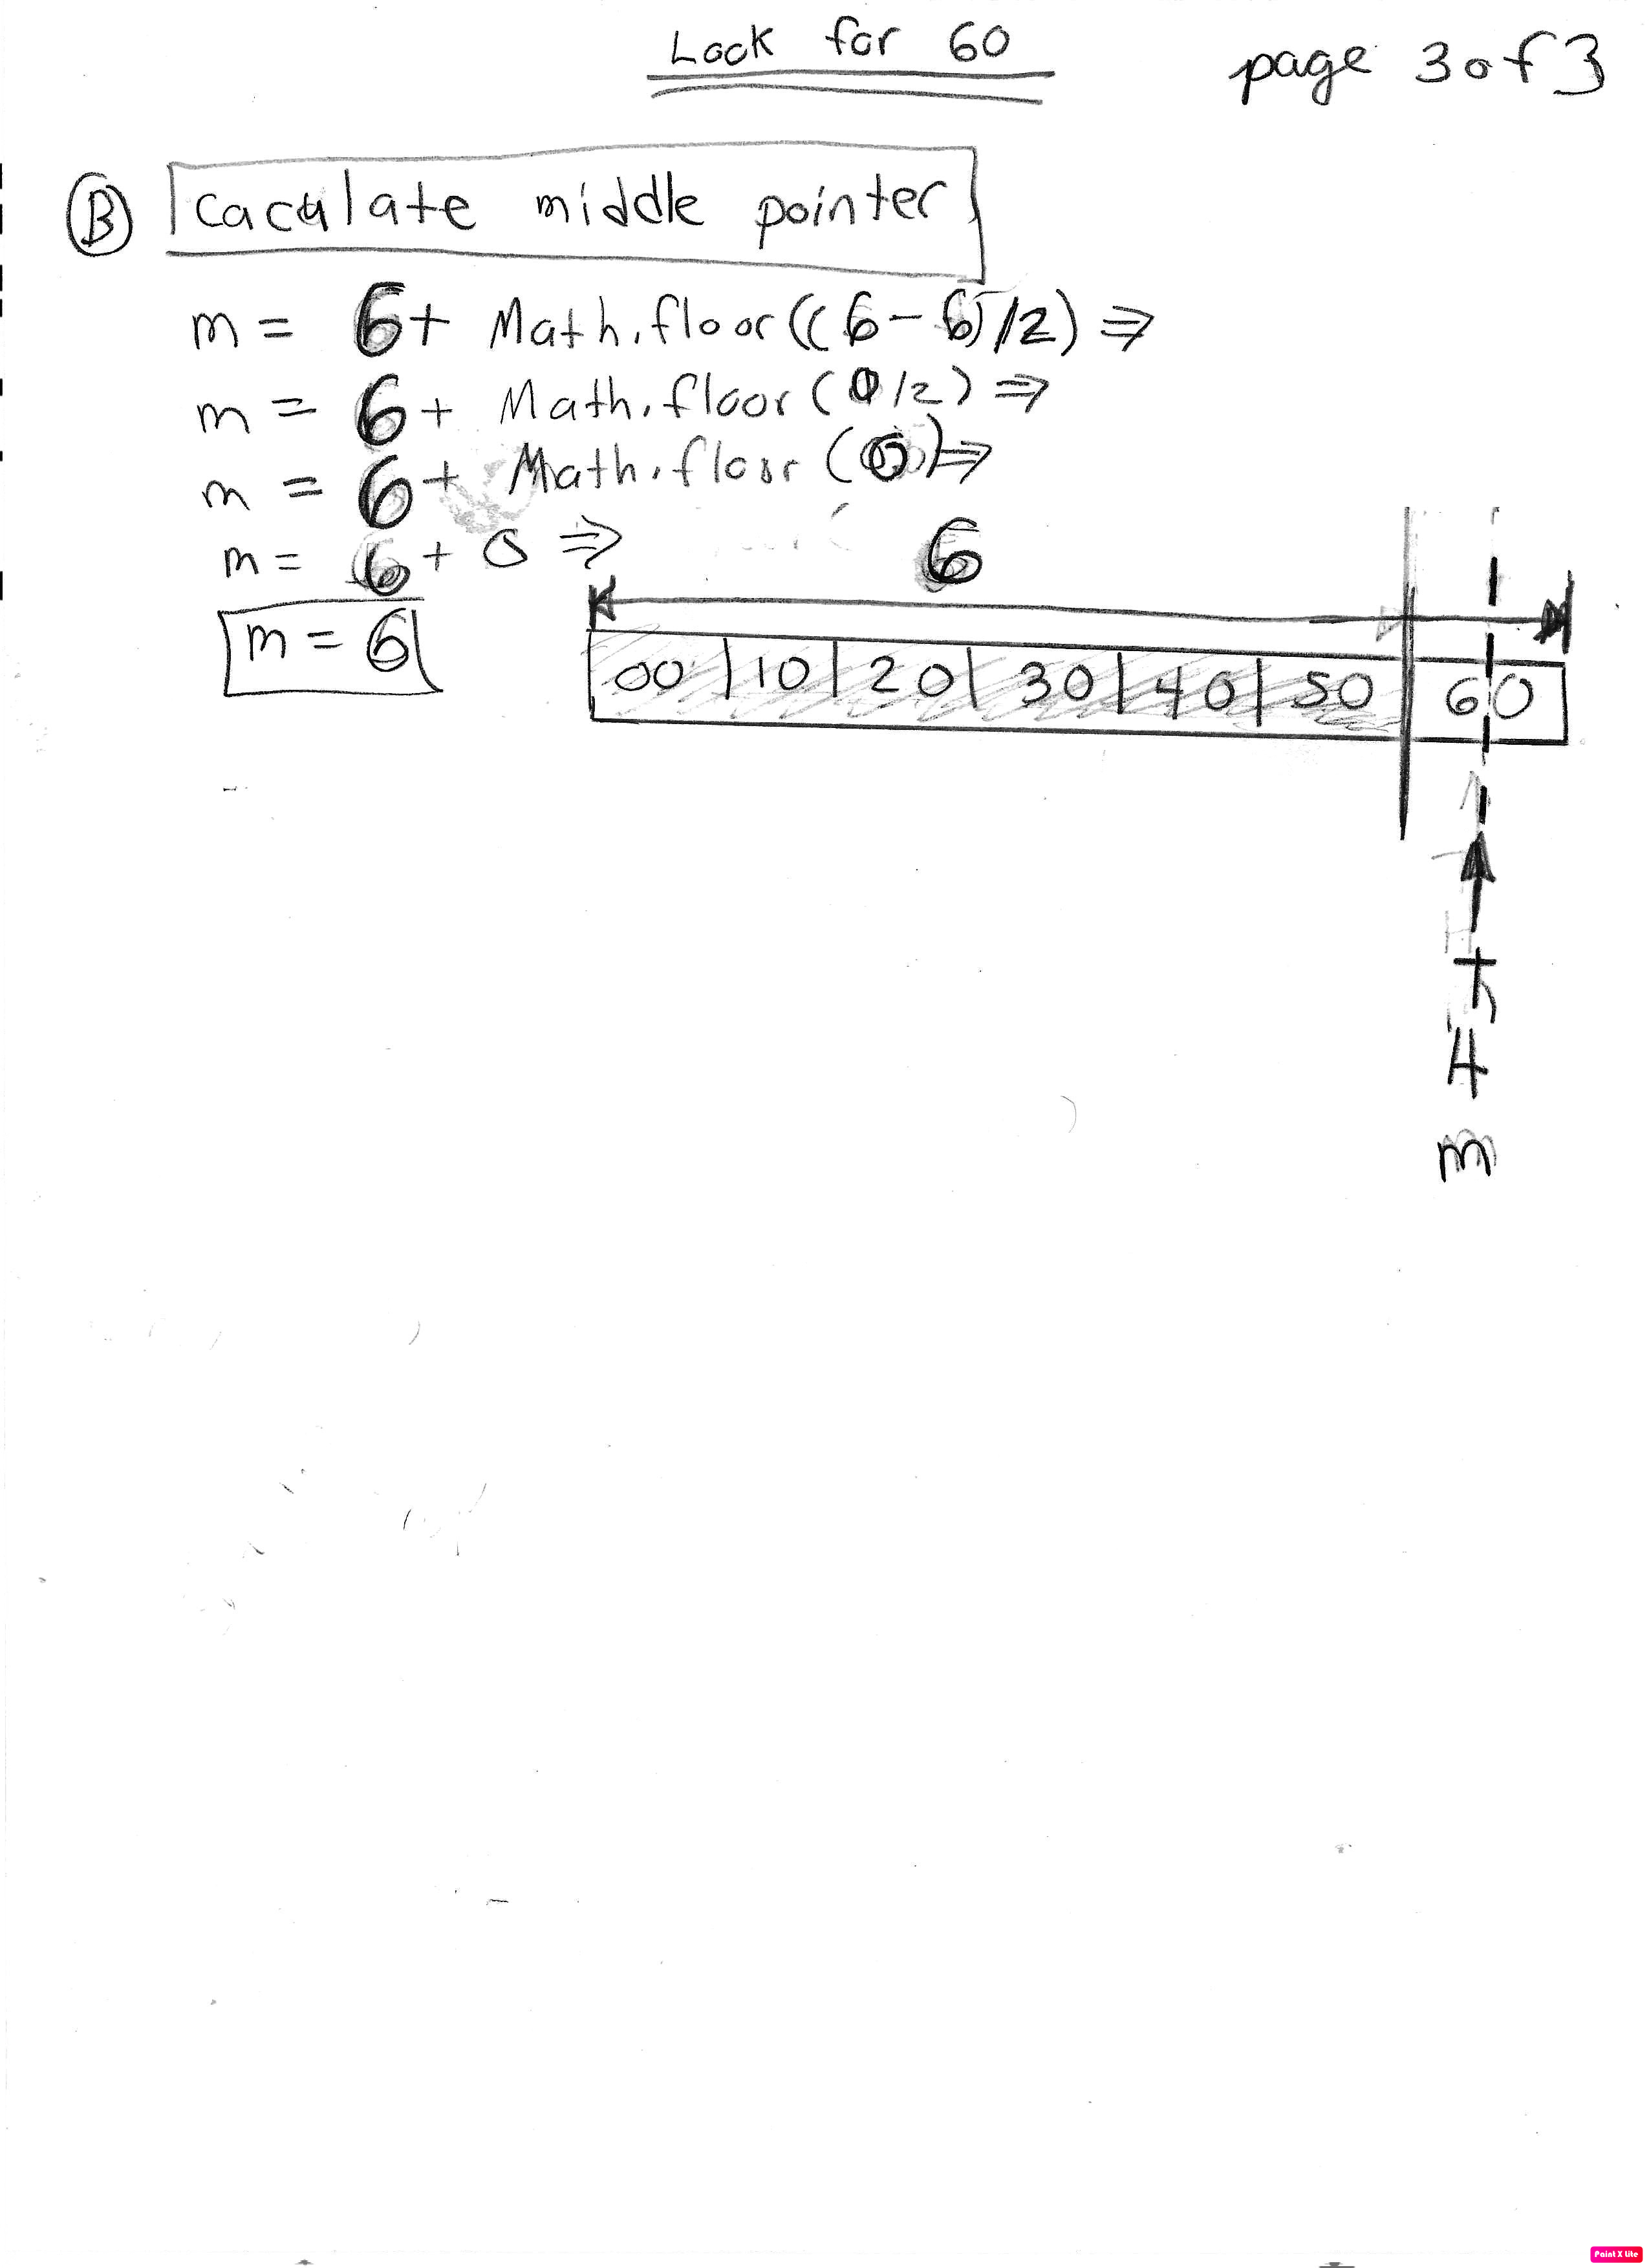 Look for 60
page 3 of 3
B caculate middle pointer
m = 6 + Math.floor((6-6)/2) ⇒
m = 6 + Math.floor(0/2) ⇒
m = 6 + Math.floor(0) ⇒
m = 6 + 0 ⇒
6
m = 6
00 | 10 | 20 | 30 | 40 | 50 | 60
m
Paint X Lite